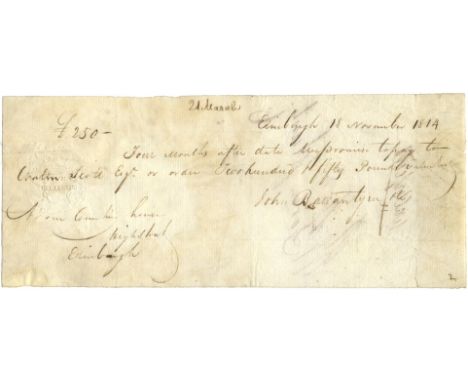 21 March
£250-
Edinburgh 18 November 1814
Four Months after date we promise to pay to
Walter Scott Esqr. or order Two hundred & fifty Pounds value
John Ballantyne & Co
At our Counting house
Highstreet
Edinburgh
2